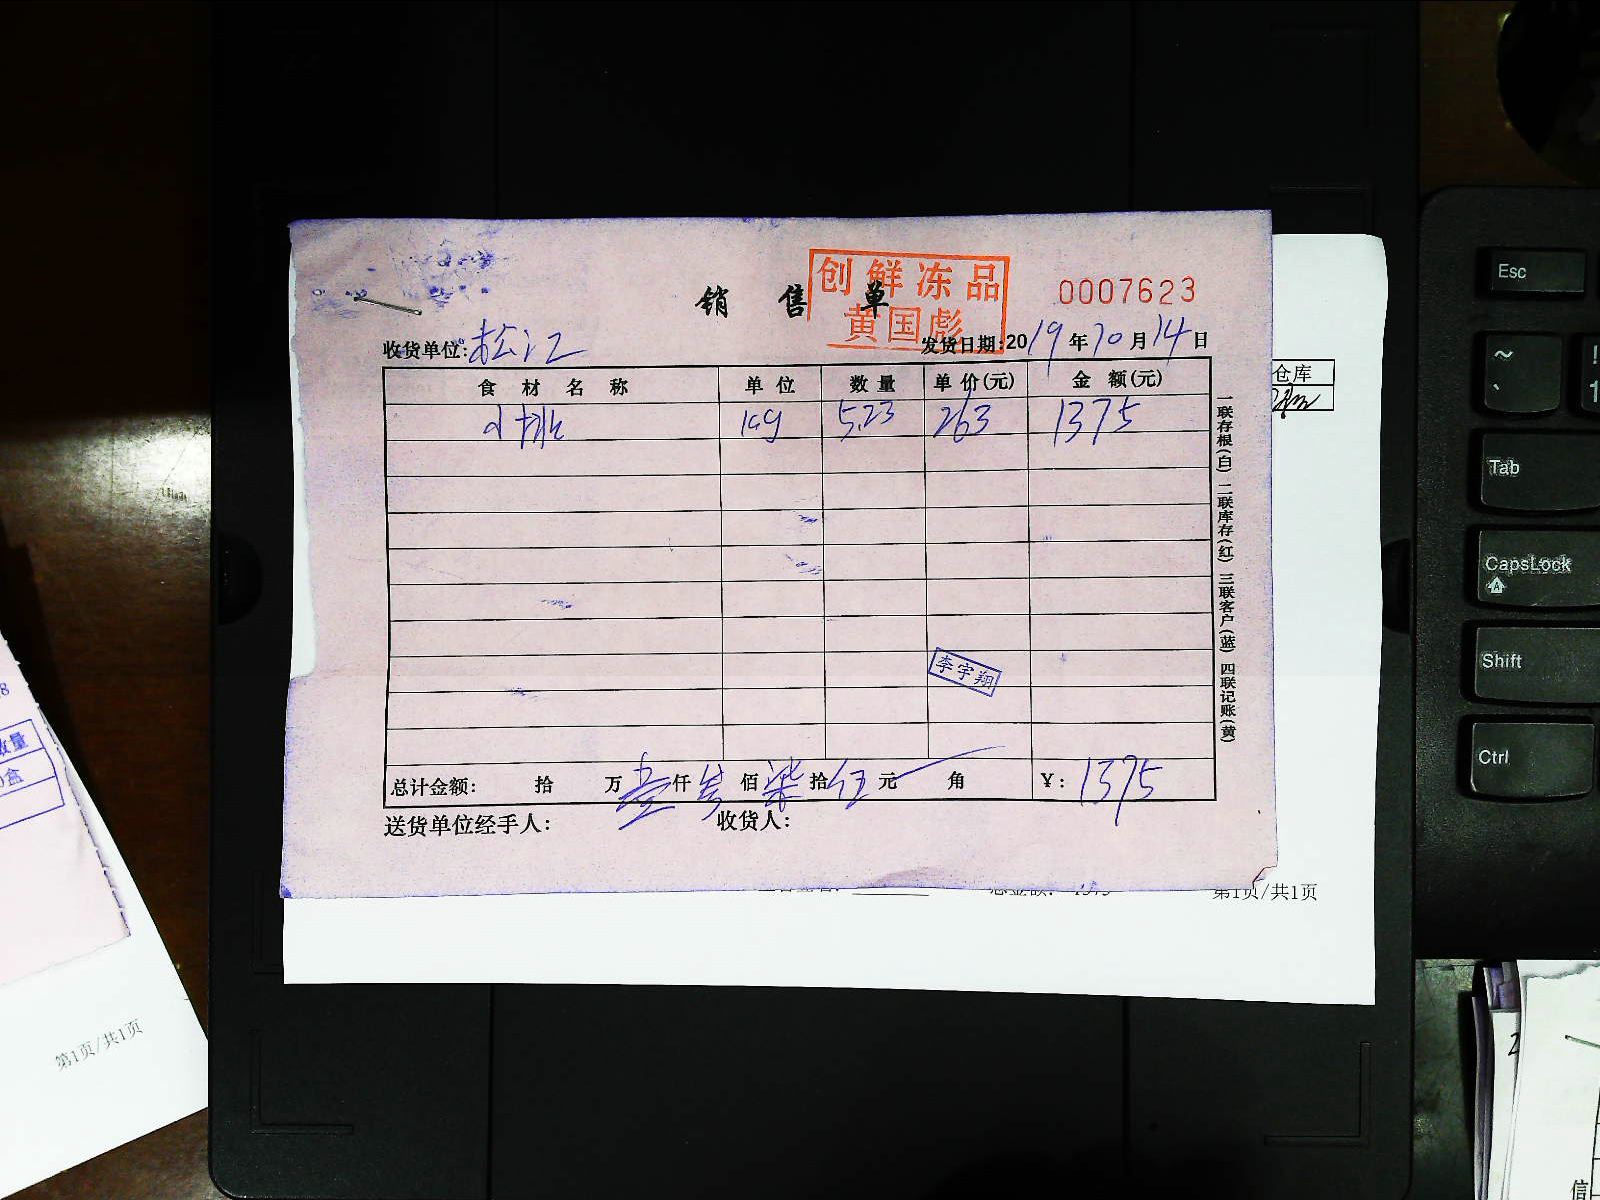 创鲜冻品
黄国彪
销售单
0007623
收货单位: 松江
发货日期:2019年10月14日
食材名称 单位 数量 单价(元) 金额(元)
小排 kg 5.23 263 1375
李宇翔
总计金额: 拾 万壹仟叁佰柒拾伍元 角 ¥: 1375
送货单位经手人: 收货人:
一联存根(白) 二联库存(红) 三联客户(蓝) 四联记账(黄)
仓库
第1页/共1页
数量
盒
8
第1页/共1页
Esc
~
Tab
CapsLock
Shift
Ctrl
信